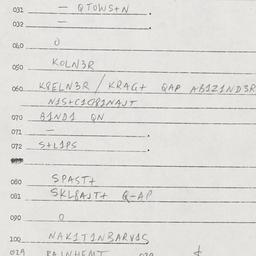 031 — QTOWS+N .
032 — .
040 0
050 KOLN3R
060 KRELN3R / KRAG+ QAP AB1Z1ND3R
N1S+C1CR1NAJT
070 B1ND1 QN
071 — .
072 S+L1PS .
080 SPAST+
081 SKLBAJT+ Q-AP
090 0
100 NAK1T1NBARV1S